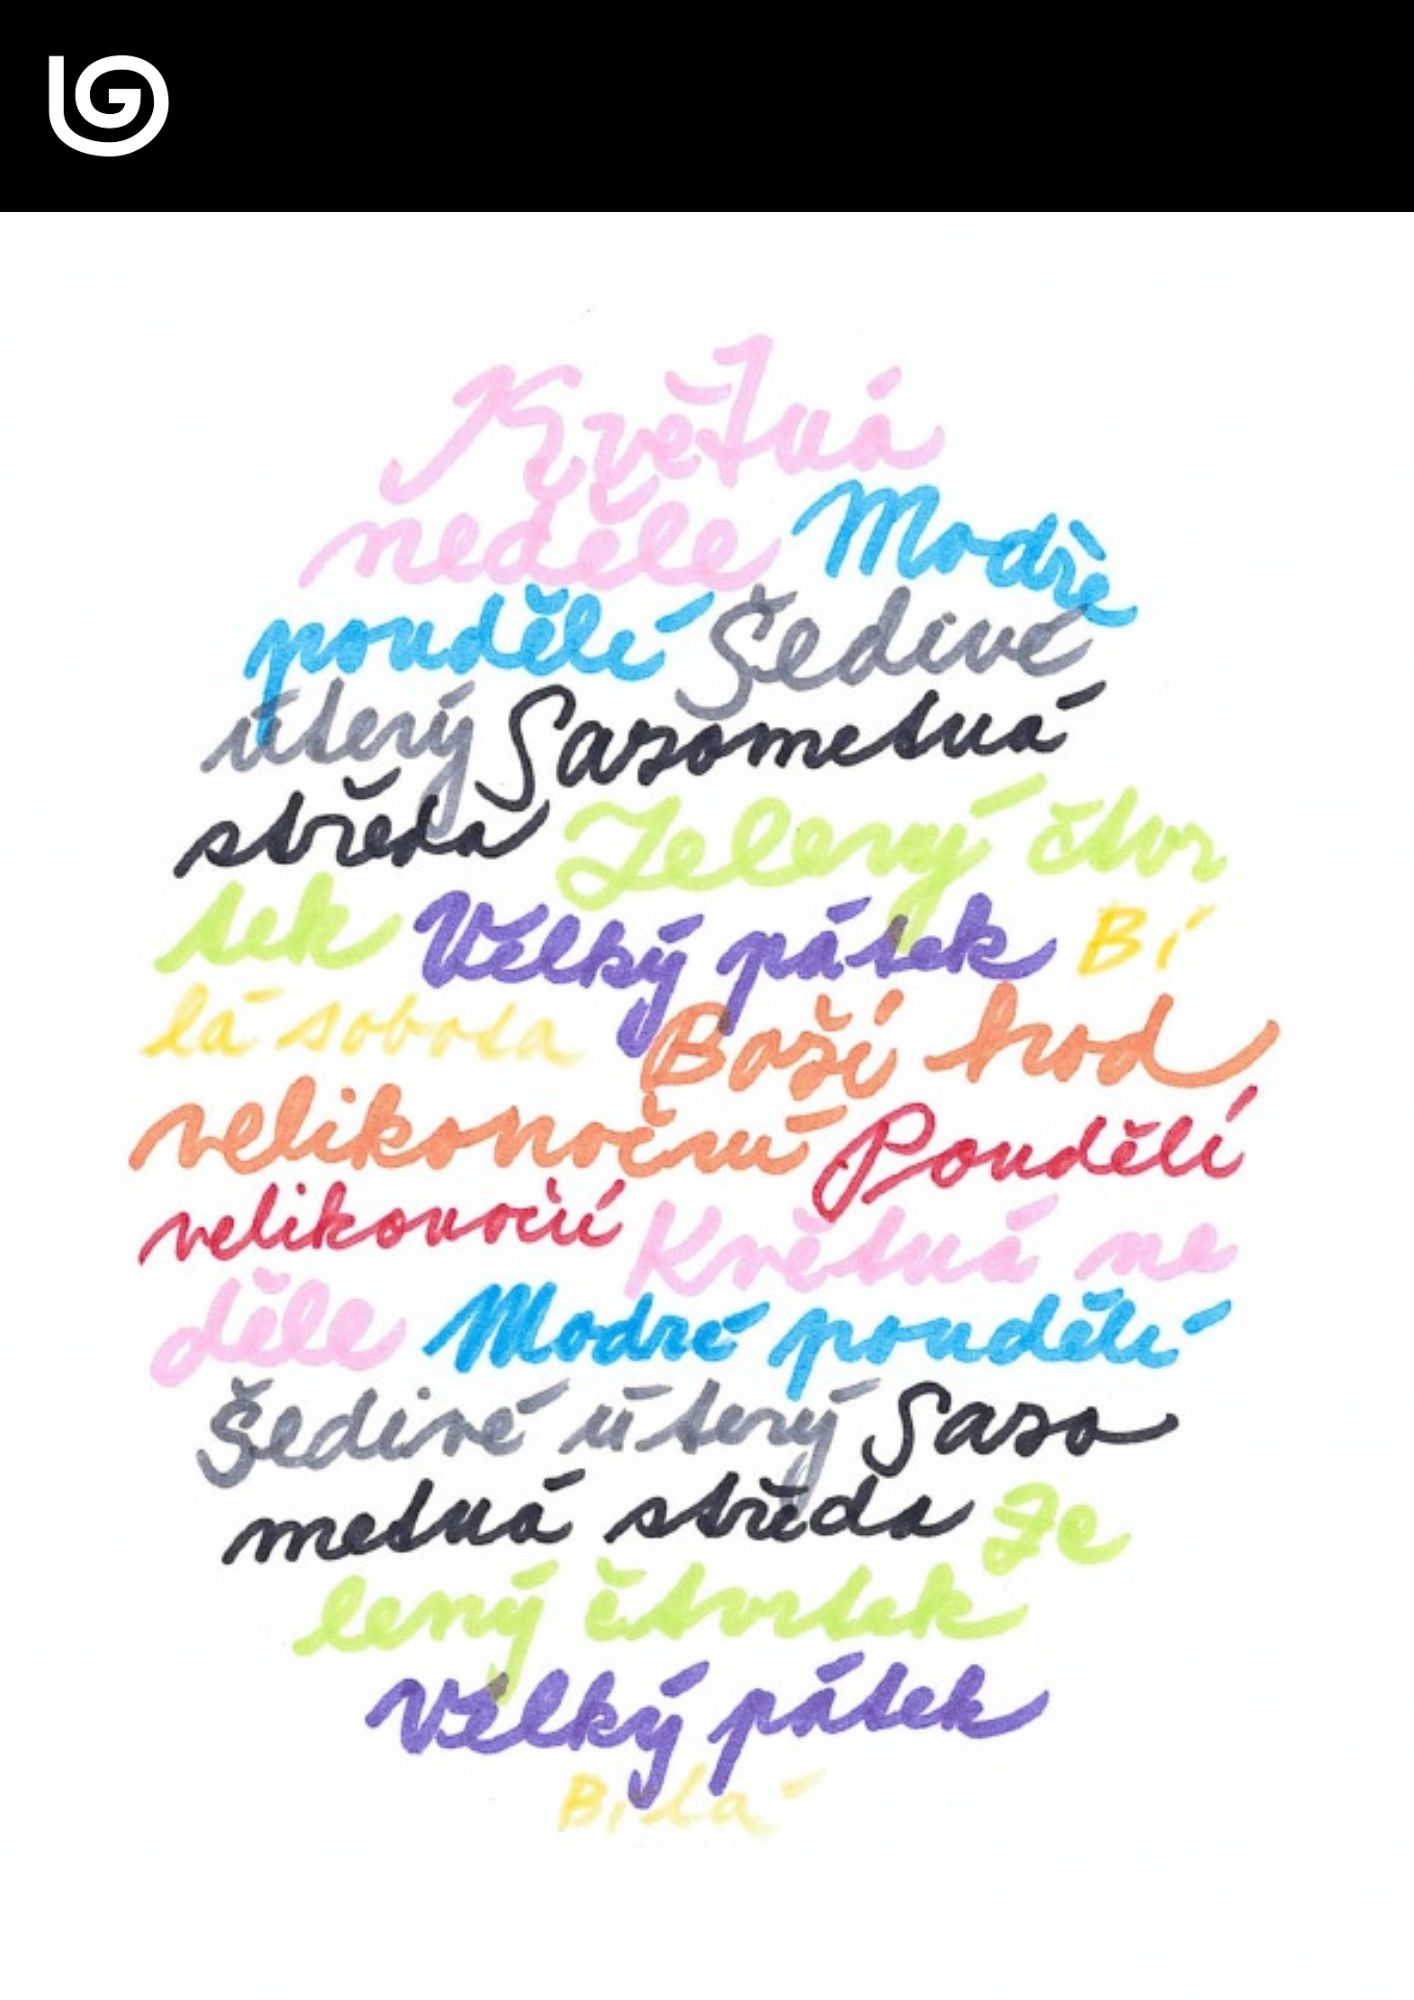 Květná
neděle Modré
pondělí Šedivé
úterý Sazometná
středa Zelený čtvr
tek Velký pátek Bí
lá sobota Boží hod
velikonoční Pondělí
velikonoční Květná ne
děle Modré pondělí
Šedivé úterý Sazo
metná středa Ze
lený čtvrtek
Velký pátek
Bílá